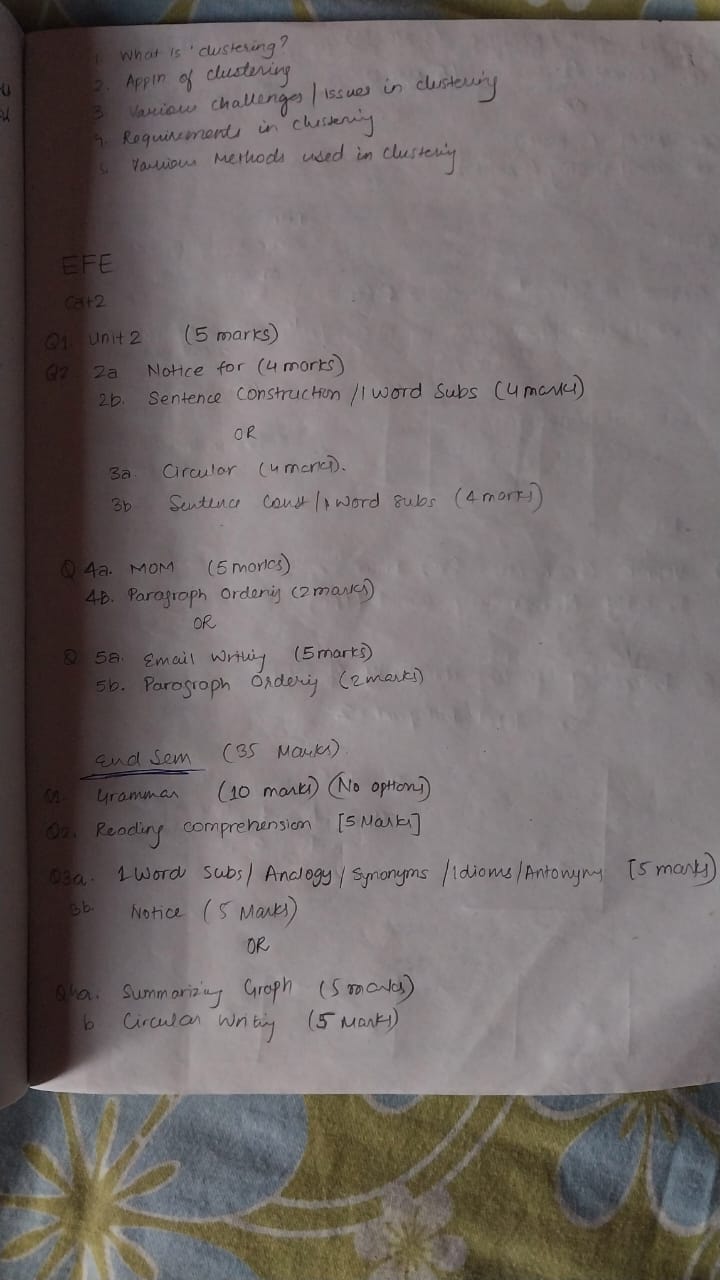 1. What is 'clustering?
2. Appln of clustering
3 Various challenges / issues in clustering
4. Requirements in clustering
5. Various Methods used in clustering
EFE
Cat2
Q1. Unit 2 (5 marks)
Q2 2a Notice for (4 marks)
2b. Sentence Construction / 1 word Subs (4 marks)
OR
3a. Circular (4 marks).
3b Sentence Const / 1 word subs (4 marks)
Q 4a. MOM (5 marks)
4B. Paragraph Ordering (2 marks)
OR
Q 5a. Email Writing (5 marks)
5b. Paragraph Ordering (2 marks)
End Sem (35 Marks)
Q1. Grammar (10 marks) (No options)
Q2. Reading comprehension [5 Marks]
Q3a. 1 Word Subs / Analogy / Synonyms / Idioms / Antonyms [5 marks]
3b. Notice (5 Marks)
OR
Q4a. Summarizing Graph (5 marks)
b Circular Writing (5 Marks)